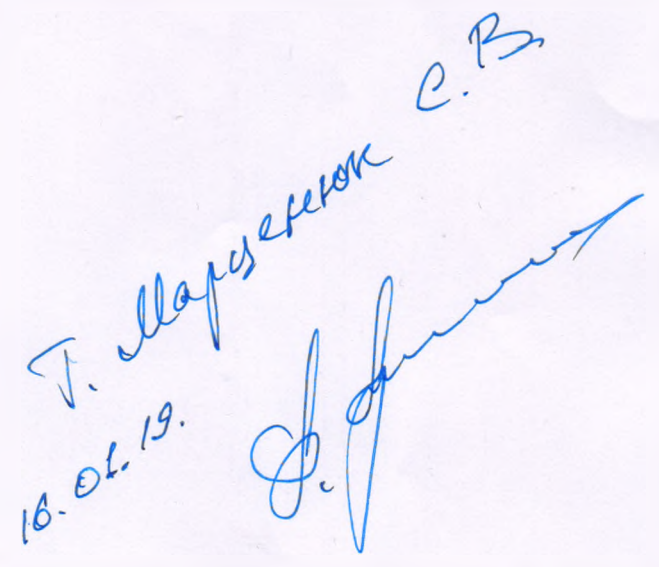 Т. Марценюк С.В.
16.01.19.